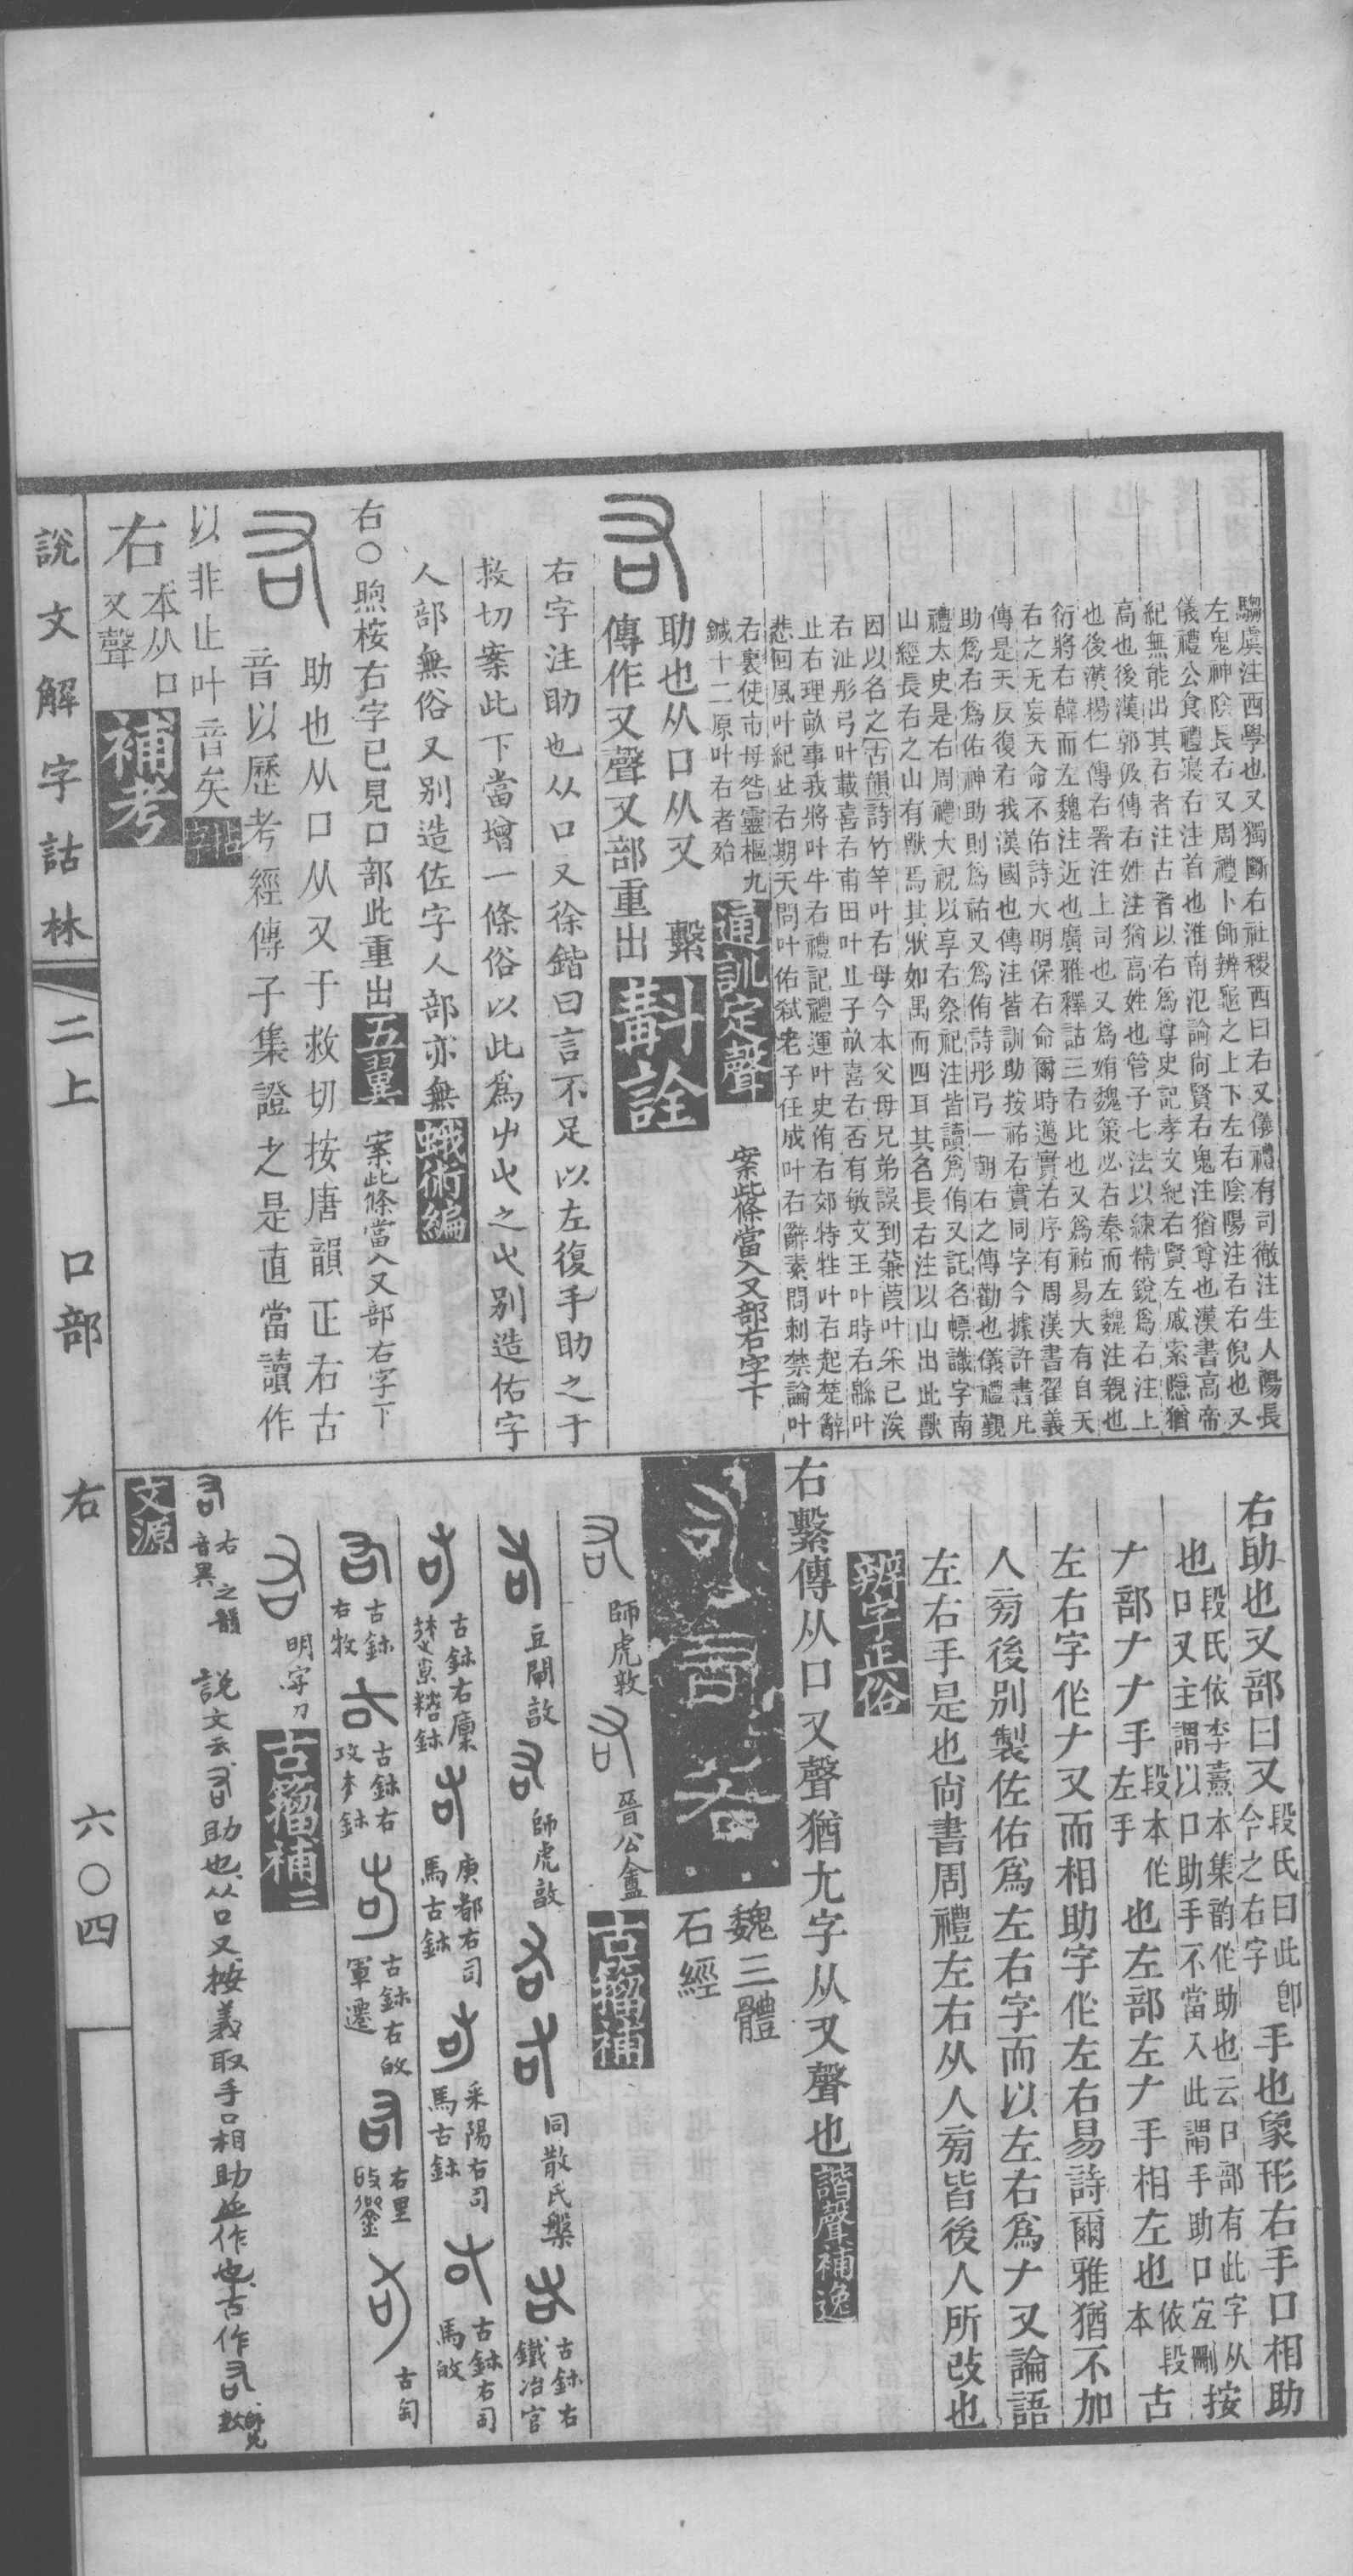 騶虞注西學也又獨斷右社稷西曰右又儀禮有司徹注生人陽長
左鬼神陰長右又周禮卜師辨龜之上下左右陰陽注右右倪也又
儀禮公食禮寢右注首也淮南氾論尙賢右鬼注猶尊也漢書高帝
紀無能出其右者注古者以右爲尊史記孝文紀右賢左戚索隱猶
高也後漢郭伋傳右姓注猶高姓也管子七法以練精銳爲右注上
也後漢楊仁傳右署注上司也又爲姷魏策必右秦而左魏注親也
衍將右韓而左魏注近也廣雅釋詁三右比也又爲祐易大有自天
右之无妄天命不佑詩大明保右命爾時邁實右序有周漢書翟義
傳是天反復右我漢國也傳注皆訓助按祐右實同字今據許書凡
助爲右爲佑神助則爲祐又爲侑詩彤弓一朝右之傳勸也儀禮覲
禮太史是右周禮大祝以享右祭祀注皆讀爲侑又託名幖識字南
山經長右之山有獸焉其狀如禺而四耳其名長右注以山出此獸
因以名之古韻詩竹竿叶右母今本父母兄弟誤到蒹葭叶采已涘
右沚彤弓叶載喜右甫田叶止子畝喜右否有敏文王叶時右緜叶
止右理畝事我將叶牛右禮記禮運叶史侑右郊特牲叶右起楚辭
悲回風叶紀止右期天問叶佑弑老子任成叶右辭素問刺禁論叶
右裏使市母咎靈樞九
鍼十二原叶右者殆
通訓定聲
案此條當入又部右字下
助也从口从又 繫
傳作又聲又部重出
斠詮
右字注助也从口又徐鍇曰言不足以左復手助之于
救切案此下當增一條俗以此爲𠂇又之又别造佑字
人部無俗又别造佐字人部亦無
蛾術編
右○煦桉右字已見口部此重出
五翼
案此條當入又部右字下
助也从口从又于救切按唐韻正右古
音以歷考經傳子集證之是直當讀作
以非止叶音矣
右
本从口
又聲
補考
右助也又部曰又
段氏曰此卽
今之右字
手也象形右手口相助
也
段氏依李燾本集韵作助也云口部有此字从
口又主謂以口助手不當入此謂手助口宐刪
按
𠂇部𠂇𠂇手
段本作
左手
也左部左𠂇手相左也
依段
本
古
左右字作𠂇又而相助字作左右易詩爾雅猶不加
人旁後别製佐佑爲左右字而以左右爲𠂇又論語
左右手是也尙書周禮左右从人旁皆後人所改也
辨字正俗
右繫傳从口又聲猶尤字从又聲也
諧聲補逸
魏三體
石經
師虎敦
晉公盦
古籀補
豆閉敦
師虎敦
同散氏盤
古鉨右
鐵冶官
古鉨右廩
庚都右司
馬古鉨
采陽右司
馬古鉨
古鉨右司
馬敀
古鉨
右牧
古鉨右
攻市鉨
古鉨右敀
軍遷
右里
敀鎣
古匋
明字刀
古籀補二
右
音異
之韻
說文云右助也从口又按義取手口相助並作也古作
師虎
敦
文源
說文解字詁林
二上
口部
右
六○四